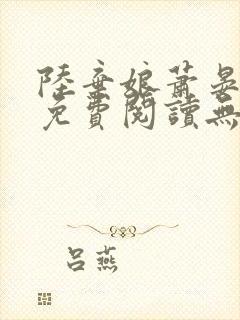 陸棄娘蕭晏
免費閱讀無
呂燕